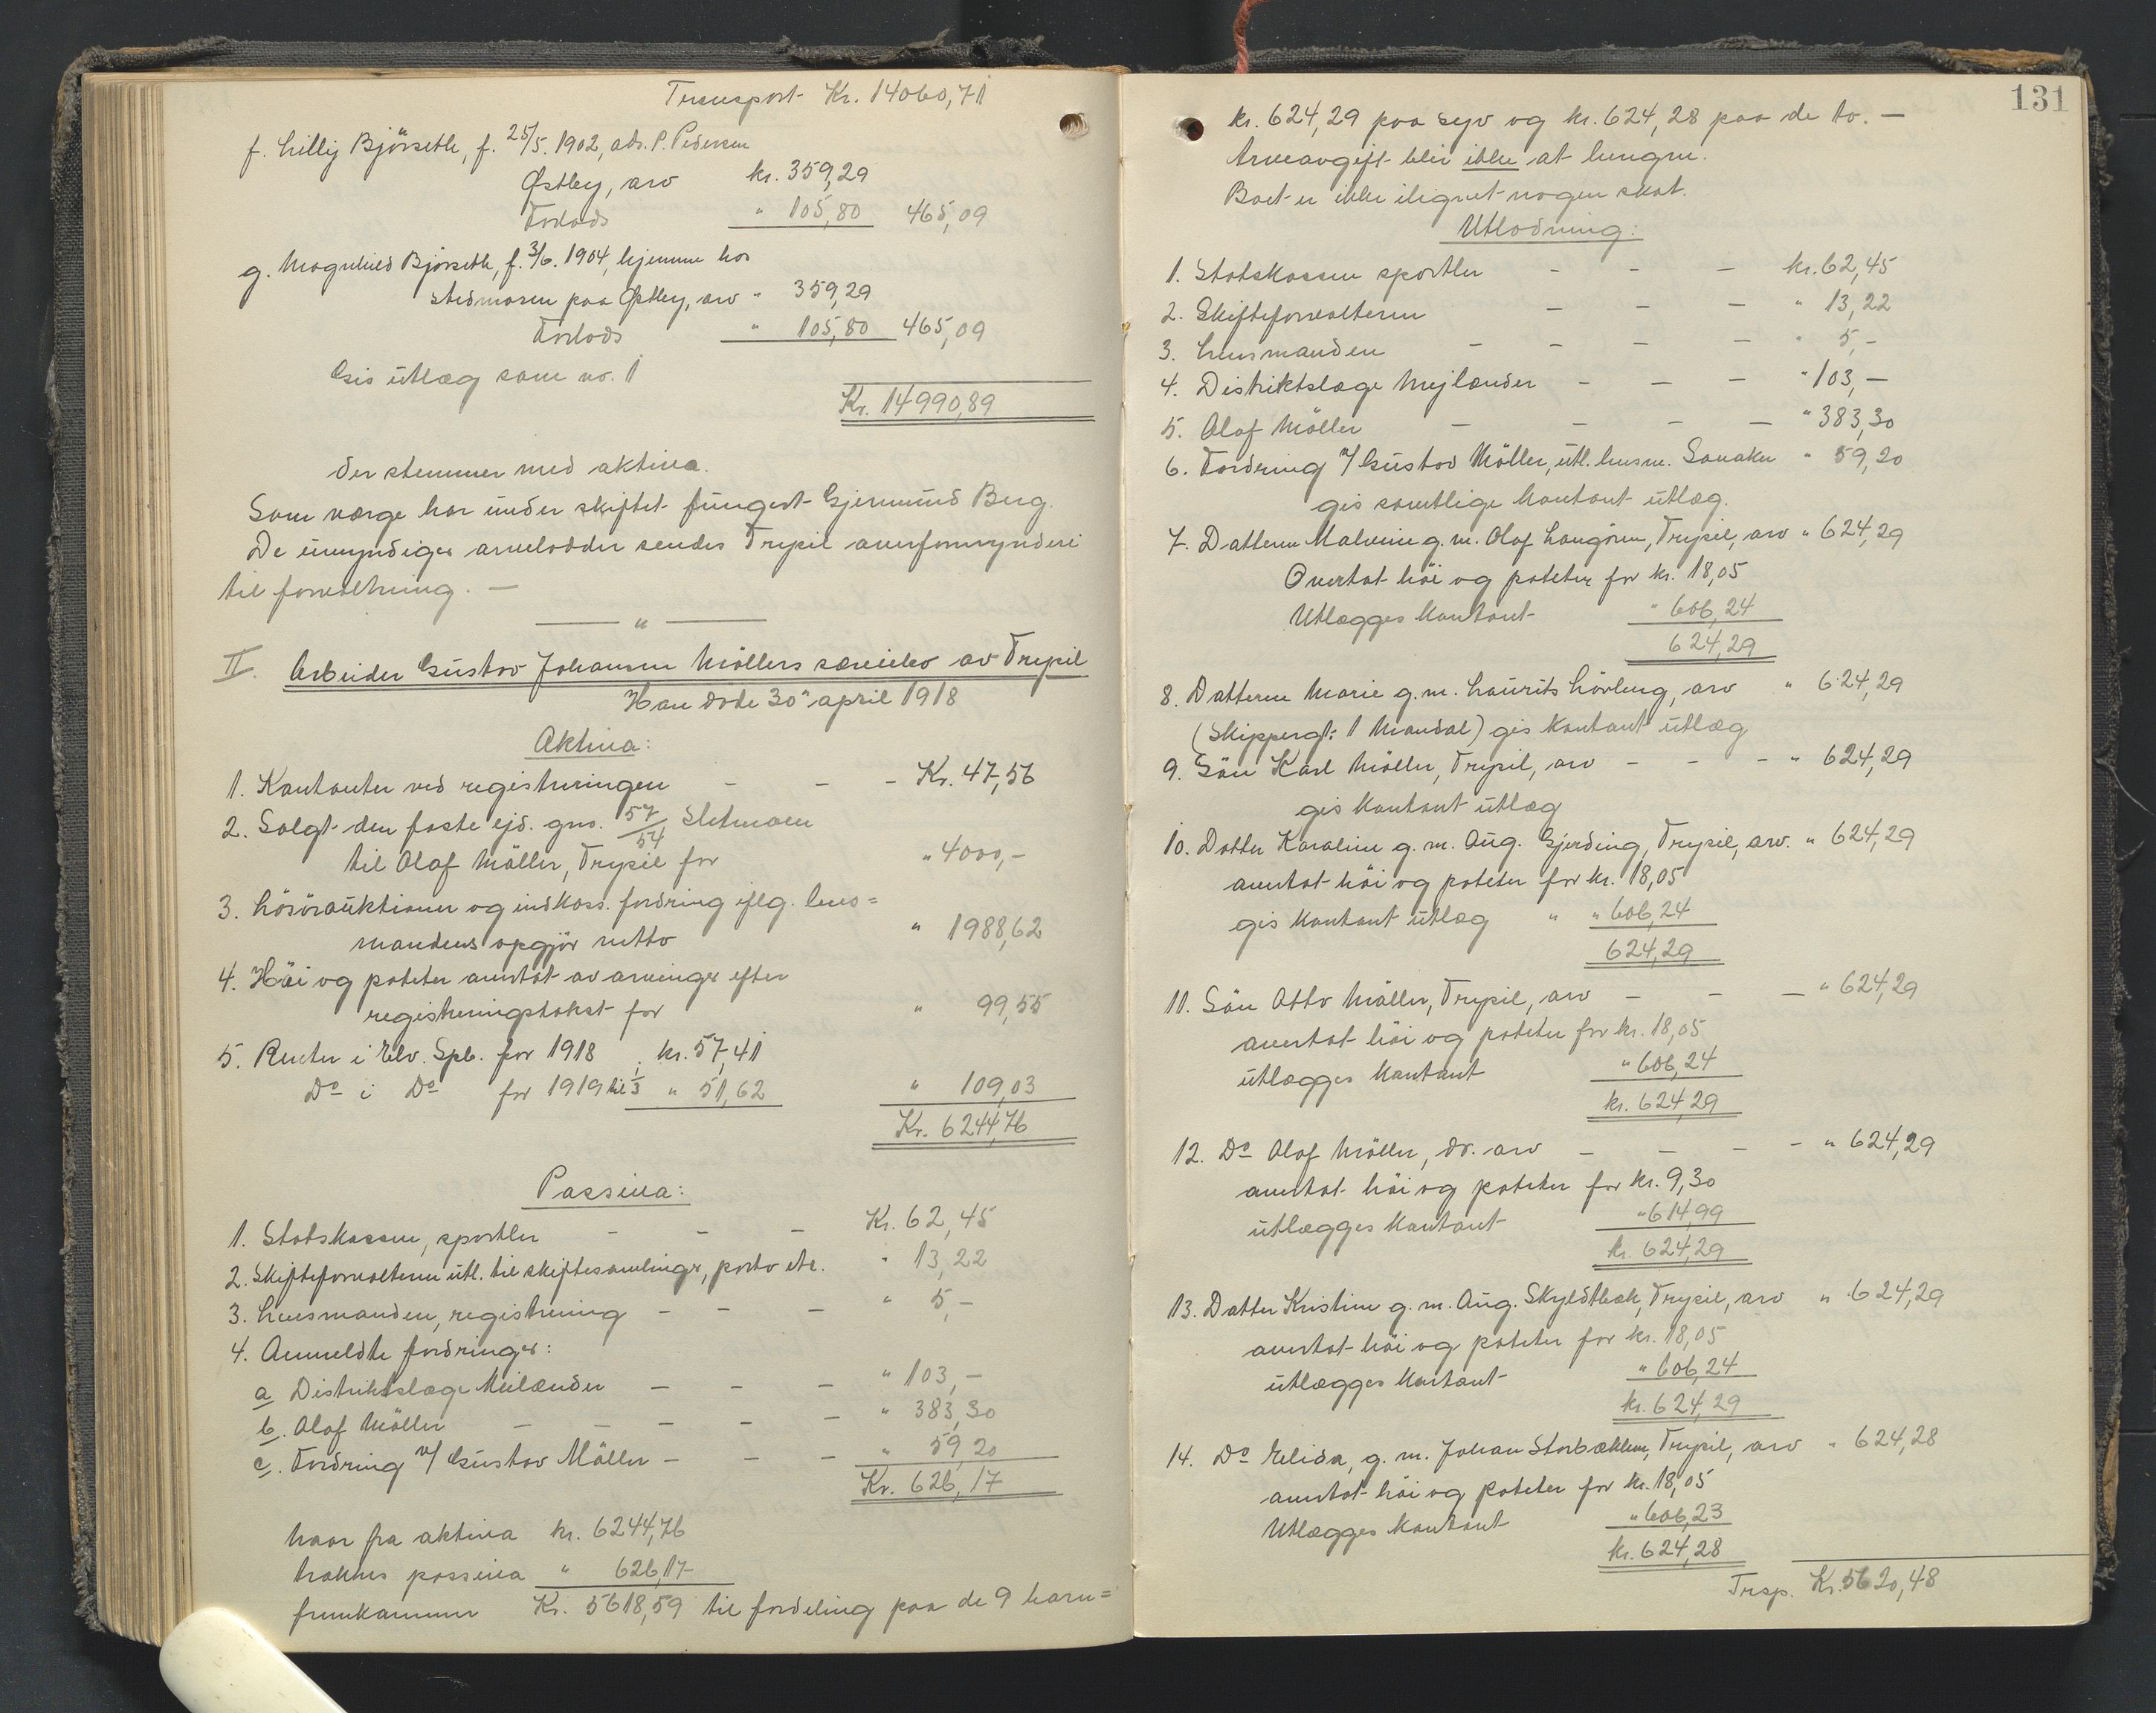 Transport Kr. 14060,71
f. Lilly Bjørseth, f. 25/5. 1902, adr. P. Pedersen
Østby, arv kr. 359,29
Forlods " 105,80 465,09
g. Magnhild Bjørseth, f. 3/6. 1904, hjemme hos
stedmoren paa Østby, arv " 359,29
Forlods " 105,80 465,09
Gis utlæg som no. 1
Kr. 14990,89
der stemmer med aktiva.
Som verge har under skiftet fungert Gjermund Berg.
De umyndiges arvelodder sendes Trysil overformynderi
til forvaltning. —
— " —
II. Arbeider Gustav Johansen Möllers særeiebo av Trysil
Han døde 30' april 1918
Aktiva:
1. Kontanter ved registreringen - - - Kr. 47,56
2. Solgt den faste ejd. gno. 57/54 Sletmoen
til Olaf Möller, Trysil for " 4000,-
3. Lösöreauktionen og indkass. fordring iflg. lens=
mandens opgjör netto " 1988,62
4. Höi og poteter overtat av arvinger efter
registreringstakst for " 99,55
5. Renter i Elv. Spb. for 1918 kr. 57,41
Do i Do for 1919 til 1/3 " 51,62 " 109,03
Kr. 6244,76
Passiva:
1. Statskassen, sportler - - - Kr. 62,45
2. Skifteforvalteren utl. til skiftesamlinger, porto etc. " 13,22
3. Lensmanden, registrering - - - " 5,-
4. Anmeldte fordringer:
a Distriktslæge Meilænder - - - " 103,-
b. Olaf Möller - - - - - " 383,30
c. Fordring v/ Gustav Möller - - - " 59,20
Kr. 626,17
Naar fra aktiva kr. 6244,76
trækkes passiva " 626,17
fremkommer Kr. 5618,59 til fordeling paa de 9 barn=
131
kr. 624,29 paa syv og kr. 624,28 paa de to. —
Arveavgift blir ikke at beregne.
Boet er ikke ilignet nogen skat.
Utlodning:
1. Statskassen sportler - - - kr. 62,45
2. Skifteforvalteren - - - " 13,22
3. Lensmanden - - - - " 5,-
4. Distriktslæge Mejlænder - - - " 103,-
5. Olaf Möller - - - - " 383,30
6. Fordring v/ Gustav Möller, utl. lensm. " 59,20
gis samtlige kontant utlæg.
7. Datteren Malvine g. m. Olaf Langören, Trysil, arv " 624,29
Overtat höi og poteter for kr. 18,05
Utlægges kontant " 606,24
624,29
8. Datteren Marie g. m. Laurits Lövberg, arv " 624,29
(Skippergt. 1 Mandal) gis kontant utlæg
9. Sön Karl Möller, Trysil, arv - - - " 624,29
gis kontant utlæg
10. Datter Karoline g. m. Aug. Gjerding, Trysil, arv. " 624,29
overtat höi og poteter for kr. 18,05
gis kontant utlæg " " 606,24
624,29
11. Sön Otto Möller, Trysil, arv - - - " 624,29
overtat höi og poteter for kr. 18,05
utlægges kontant " 606,24
kr. 624,29
12. Do Olaf Möller, do. arv - - - - " 624,29
overtat höi og poteter for kr. 9,30
utlægges kontant " 614,99
kr. 624,29
13. Datter Kristine g. m. Aug. Skyldtbæk, Trysil, arv " 624,29
overtat höi og poteter for kr. 18,05
utlægges kontant " 606,24
kr. 624,29
14. Do Elida, g. m. Johan Storbækken, Trysil, arv " 624,28
overtat höi og poteter for kr. 18,05
Utlægges kontant " 606,23
kr. 624,28
Trsp. Kr. 5620,48